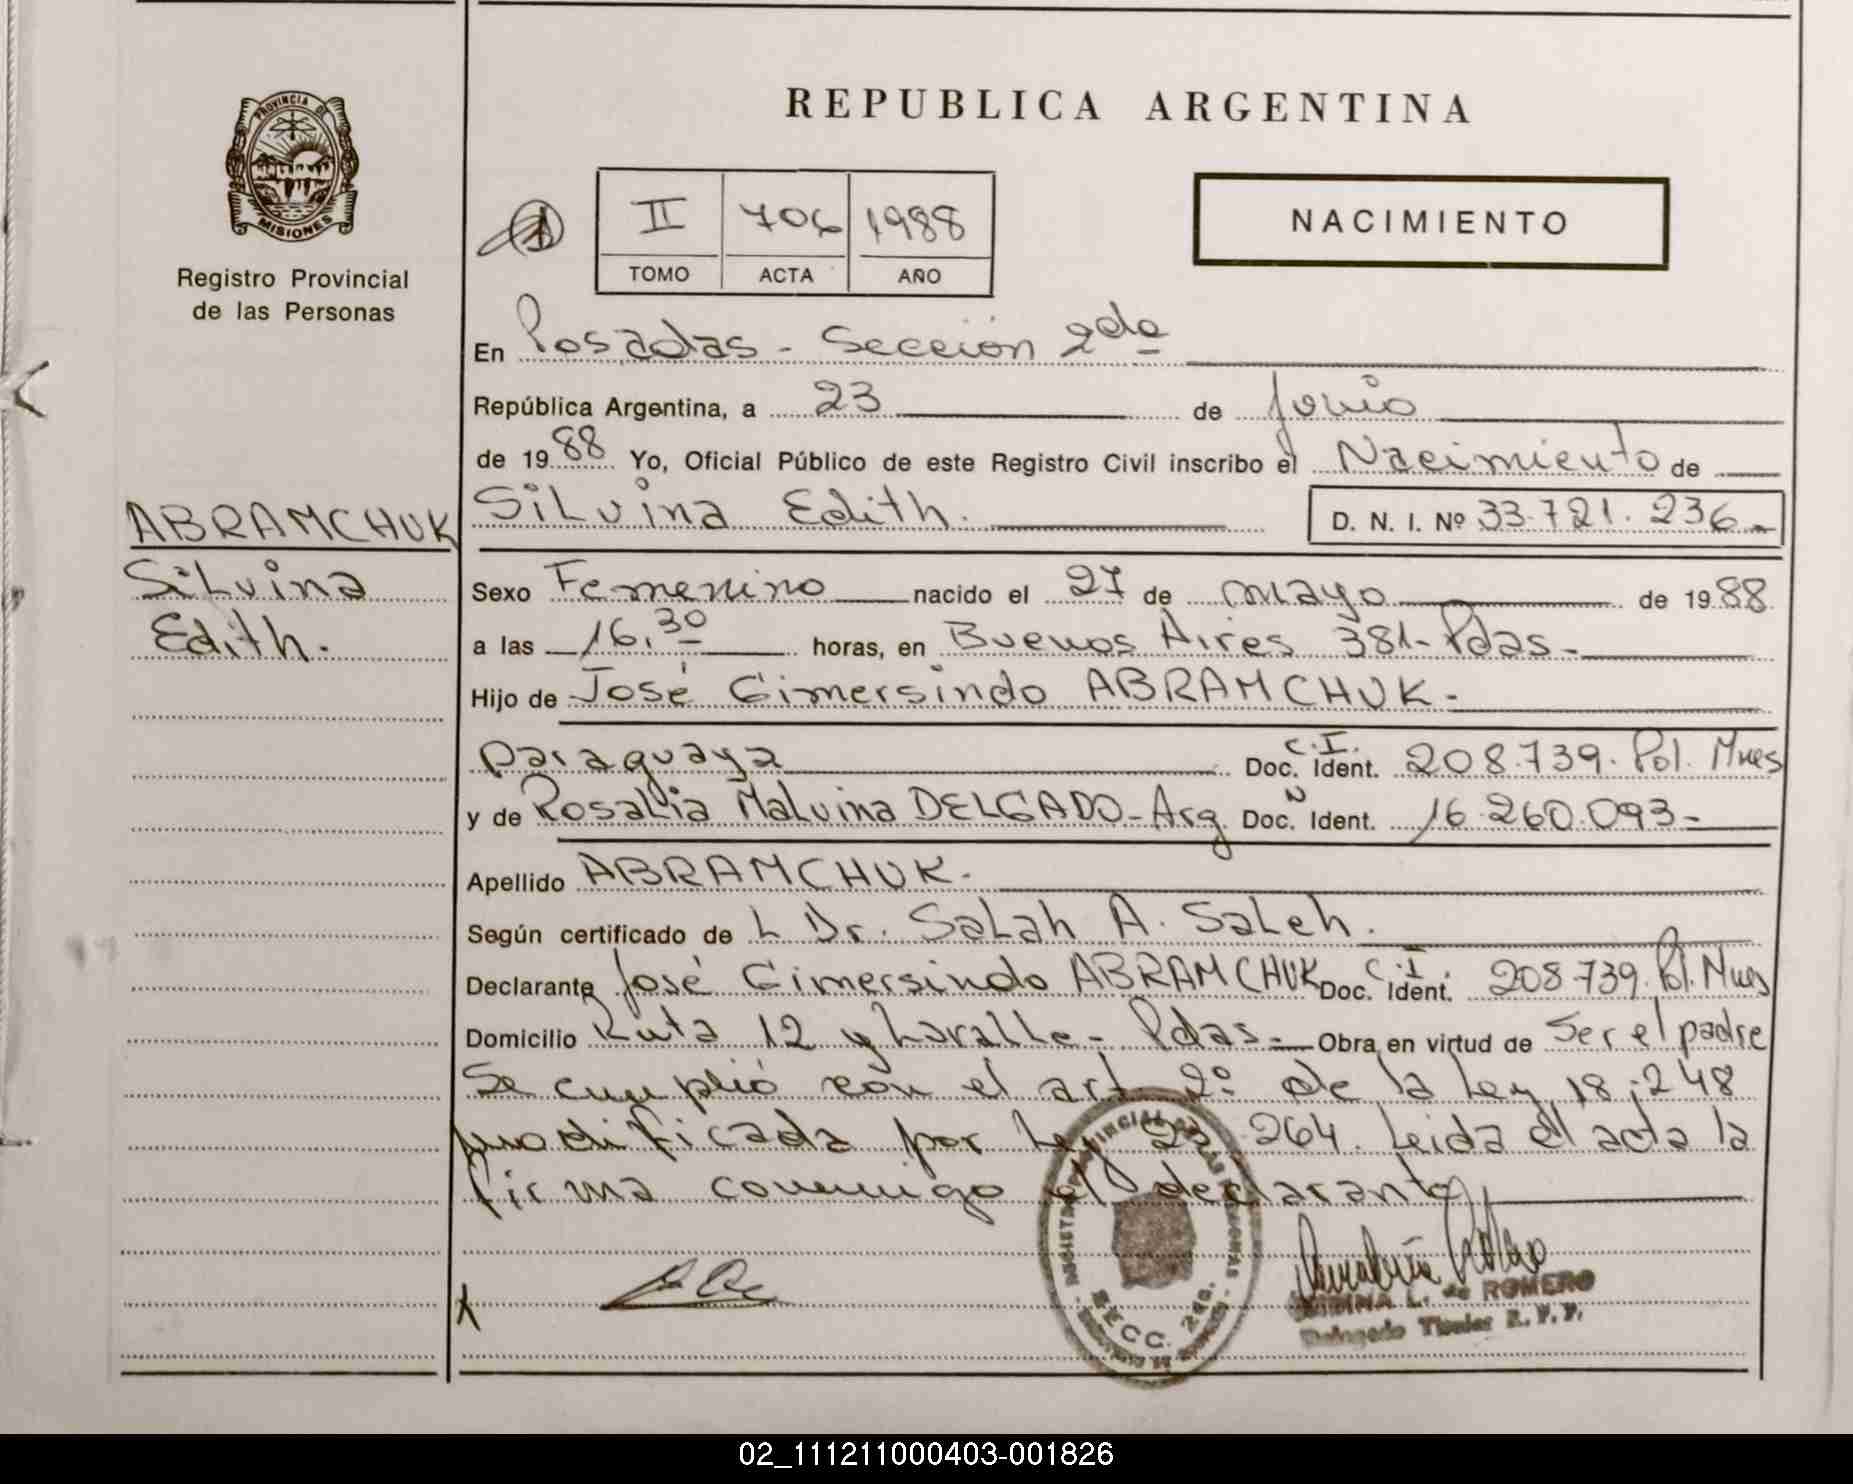 REPUBLICA ARGENTINA
PROVINCIA DE
MISIONES
Registro Provincial
de las Personas
II 706 1988
TOMO ACTA AÑO
NACIMIENTO
En Posadas - Sección 2da
República Argentina, a 23 de Junio
de 1988 Yo, Oficial Público de este Registro Civil inscribo el Nacimiento de
Silvina Edith. D. N. I. Nº 33.721.236
ABRAMCHUK
Silvina
Edith.
Sexo Femenino nacido el 27 de mayo de 1988
a las 16.30 horas, en Buenos Aires 381 - Pdas -
Hijo de José Gimersindo ABRAMCHUK -
paraguaya C.I. Doc. Ident. 208.739. Pol. Mnes
y de Rosalia Malvina DELGADO - Arg. Doc. N Ident. 16.260.093 -
Apellido ABRAMCHUK -
Según certificado de L Dr. Salah A. Saleh.
Declarante José Gimersindo ABRAMCHUK C.I. Doc. Ident. 208.739. Pol. Mnes
Domicilio Ruta 12 y - Pdas - Obra en virtud de Ser el padre
Se cumplió con el art 2º de la Ley 18.248
modificada por Ley 23.264. Leida el acta la
firma conmigo el declarante,
SECC. 2da.
L. de ROMERO
Delegado Titular R. P. P.
02_111211000403-001826